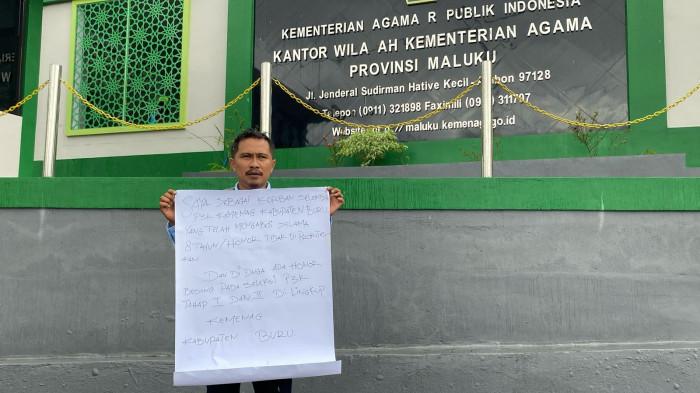 KEMENTERIAN AGAMA R PUBLIK INDONESIA
KANTOR WILA AH KEMENTERIAN AGAMA
PROVINSI MALUKU
Jl. Jenderal Sudirman Hative Kecil - Ambon 97128
Telepon (0911) 321898 Faximili (0911) 311797
Website maluku kemenag.go.id
SAYA SEBAGAI KORBAN SELEKSI
P3K KEMENAG KABUPATEN BURU
YANG TELAH MENGABDI SELAMA
8 TAHUN/HONOR TIDAK DI
KAN
DAN DI DUGA ADA HONOR
BODONG PADA SELEKSI P3K
TAHAP I DAN II DI LINGKUP
KEMENAG
KABUPATEN BURU